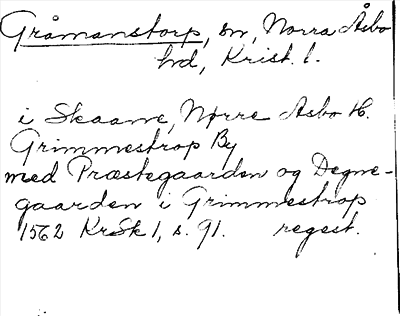 Gråmanstorp, sn, Norra Åsbo
hd, Krist. l.
i Skaane, Nørre Asbo H.
Grimmestrop By
med Præstegaarden og Degne-
gaarden i Grimmestrop
1562 KrSk 1, s. 91. regest.